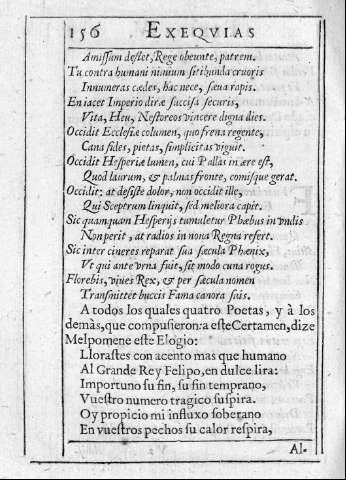 156 EXEQVIAS
Amissam deflet, Rege obeunte, patrem.
Tu contra humani nimium sitibunda cruoris
Innumeras cædes, hac nece, sæua rapis.
En iacet Imperio diræ succisa securis,
Vita, Heu, Nestoreos vincere digna dies.
Occidit Ecclesiæ columen, quo frena regente,
Cana fides, pietas, simplicitas viguit.
Occidit Hesperiæ lumen, cui Pallas in ære est,
Quod laurum, & palmas fronte, comisque gerat.
Occidit: at desiste dolor, non occidit ille,
Qui Sceptrum linquit, sed meliora capit.
Sic quamquam Hesperijs tumuletur Phœbus in vndis
Non perit, at radios in noua Regna refert.
Sic inter cineres reparat sua sæcula Phœnix,
Vt qui ante vrna fuit, sit modo cuna rogus.
Florebis, viues Rex, & per sæcula nomen
Transmittet buccis Fama canora suis.
A todos los quales quatro Poetas, y à los
demàs, que compusieron a este Certamen, dize
Melpomene este Elogio:
Llorastes con acento mas que humano
Al Grande Rey Felipo, en dulce lira:
Importuno su fin, su fin temprano,
Vuestro numero tragico suspira.
Oy propicio mi influxo soberano
En vuestros pechos su calor respira,
Al-